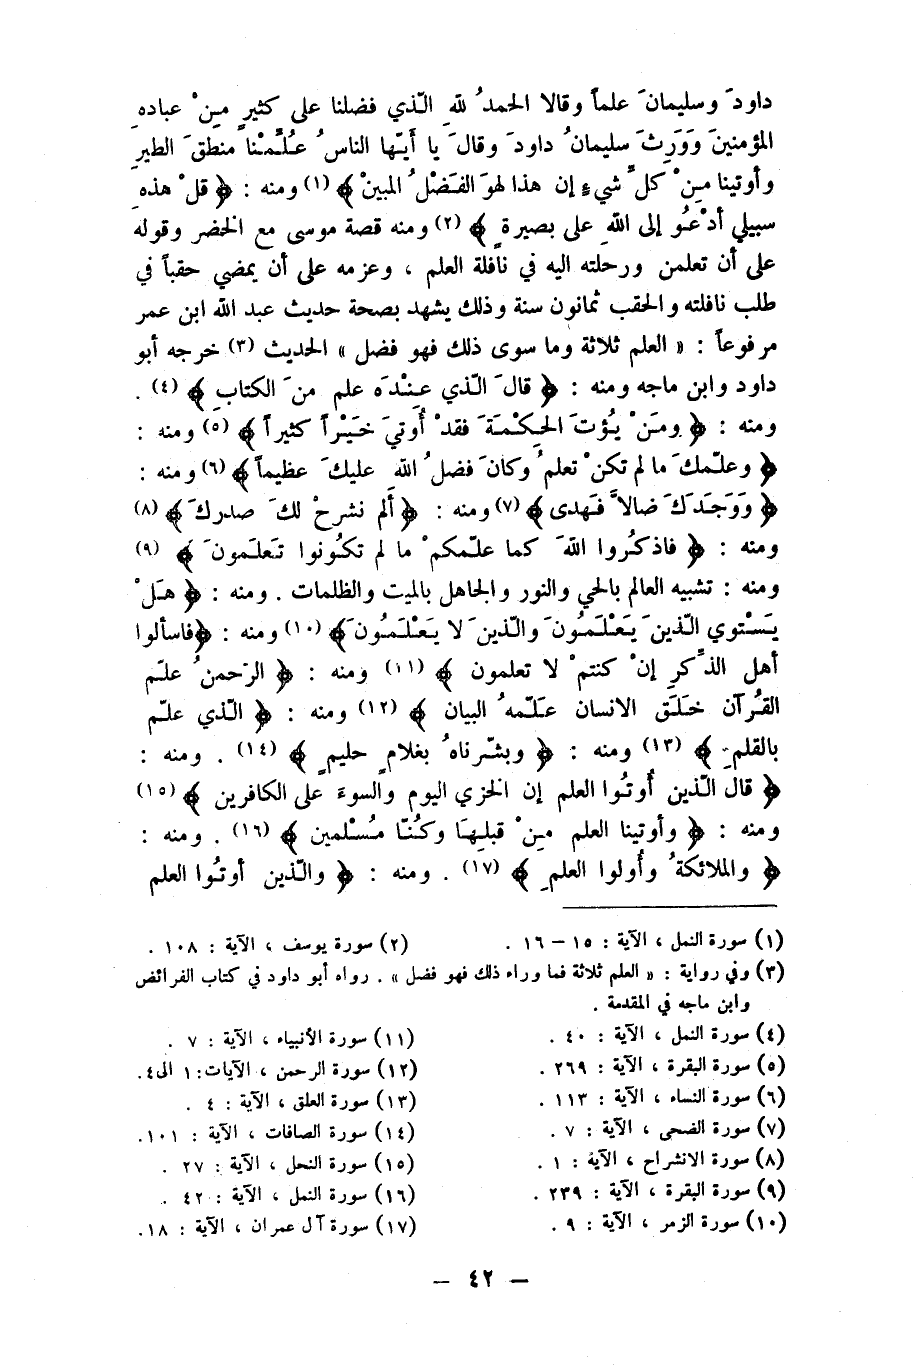 داودَ وسليمانَ علماً وقالا الحمدُ للهِ الّذي فضلنا على كثيرٍ مِنْ عبادهِ
المؤمنينَ وَوَرِثَ سليمانُ داودَ وقالَ يا أَيّها الناسُ عُلِّمْنا منطقَ الطيرِ
وأوتينا مِنْ كلِّ شيءٍ إن هذا لهوَ الفَضْلُ المبينْ ﴾ (١) ومنه : ﴿ قلْ هذهِ
سبيلي أدْعُو إلى اللهِ على بصيرةٍ ﴾ (٢) ومنه قصة موسى مع الخضر وقوله
على أن تعلمن ورحلته اليه في نافلة العلم ، وعزمه على أن يمضي حقباً في
طلب نافلته والحقب ثمانون سنة وذلك يشهد بصحة حديث عبد الله ابن عمر
مرفوعاً : « العلم ثلاثة وما سوى ذلك فهو فضل » الحديث (٣) خرجه أبو
داود وابن ماجه ومنه : ﴿ قالَ الّذي عِنْدَه علم منَ الكتابِ ﴾ (٤) .
ومنه : ﴿ ومَنْ يُؤتَ الحِكْمَةَ فقدْ أُوتيَ خَيْراً كثيراً ﴾ (٥) ومنه :
﴿ وعلّمكَ ما لم تكنْ تعلمُ وكانَ فضلُ اللهِ عليكَ عظيماً ﴾ (٦) ومنه :
﴿ وَوَجَدَكَ ضالاًّ فَهدى ﴾ (٧) ومنه : ﴿ أَلم نشرحْ لكَ صدركَ ﴾ (٨)
ومنه : ﴿ فاذكُروا اللهَ كما علّمكمْ ما لم تكُونوا تَعلَمونَ ﴾ (٩)
ومنه : تشبيه العالم بالحي والنور والجاهل بالميت والظلمات . ومنه : ﴿ هَلْ
يَسْتوي الّذينَ يَعْلَمُونَ والّذينَ لا يَعْلَمُونَ ﴾ (١٠) ومنه : ﴿ فاسألوا
أهل الذِّكرِ إنْ كنتمْ لا تعلمون ﴾ (١١) ومنه : ﴿ الرّحمنُ علّم
القُرآن خَلَق الانسان عَلّمهُ البيان ﴾ (١٢) ومنه : ﴿ الّذي علّم
بالقلمِ ﴾ (١٣) ومنه : ﴿ وبشّرناهُ بغلامٍ حليمٍ ﴾ (١٤) . ومنه :
﴿ قال الّذين أُوتُوا العلم إن الخزي اليوم والسوءَ على الكافرين ﴾ (١٥)
ومنه : ﴿ وأوتينا العلم مِنْ قبلِهَا وكُنّا مُسْلمين ﴾ (١٦) . ومنه :
﴿ والملائكةُ وأُولوا العلمِ ﴾ (١٧) . ومنه : ﴿ والّذين أوتُوا العلم
(١) سورة النمل ، الآية : ١٥ – ١٦ .
(٢) سورة يوسف ، الآية : ١٠٨ .
(٣) وفي رواية : « العلم ثلاثة فما وراء ذلك فهو فضل » . رواه أبو داود في كتاب الفرائض
وابن ماجه في المقدمة .
(٤) سورة النمل ، الآية : ٤٠ .
(٥) سورة البقرة ، الآية : ٢٦٩ .
(٦) سورة النساء ، الآية : ١١٣ .
(٧) سورة الضحى ، الآية : ٧ .
(٨) سورة الانشراح ، الآية : ١ .
(٩) سورة البقرة ، الآية : ٢٣٩ .
(١٠) سورة الزمر ، الآية : ٩ .
(١١) سورة الأنبياء ، الآية : ٧ .
(١٢) سورة الرحمن ، الآيات : ١ الى ٤ .
(١٣) سورة العلق ، الآية : ٤ .
(١٤) سورة الصافات ، الآية : ١٠١ .
(١٥) سورة النحل ، الآية : ٢٧ .
(١٦) سورة النمل ، الآية : ٤٢ .
(١٧) سورة آل عمران ، الآية : ١٨ .
– ٤٢ –